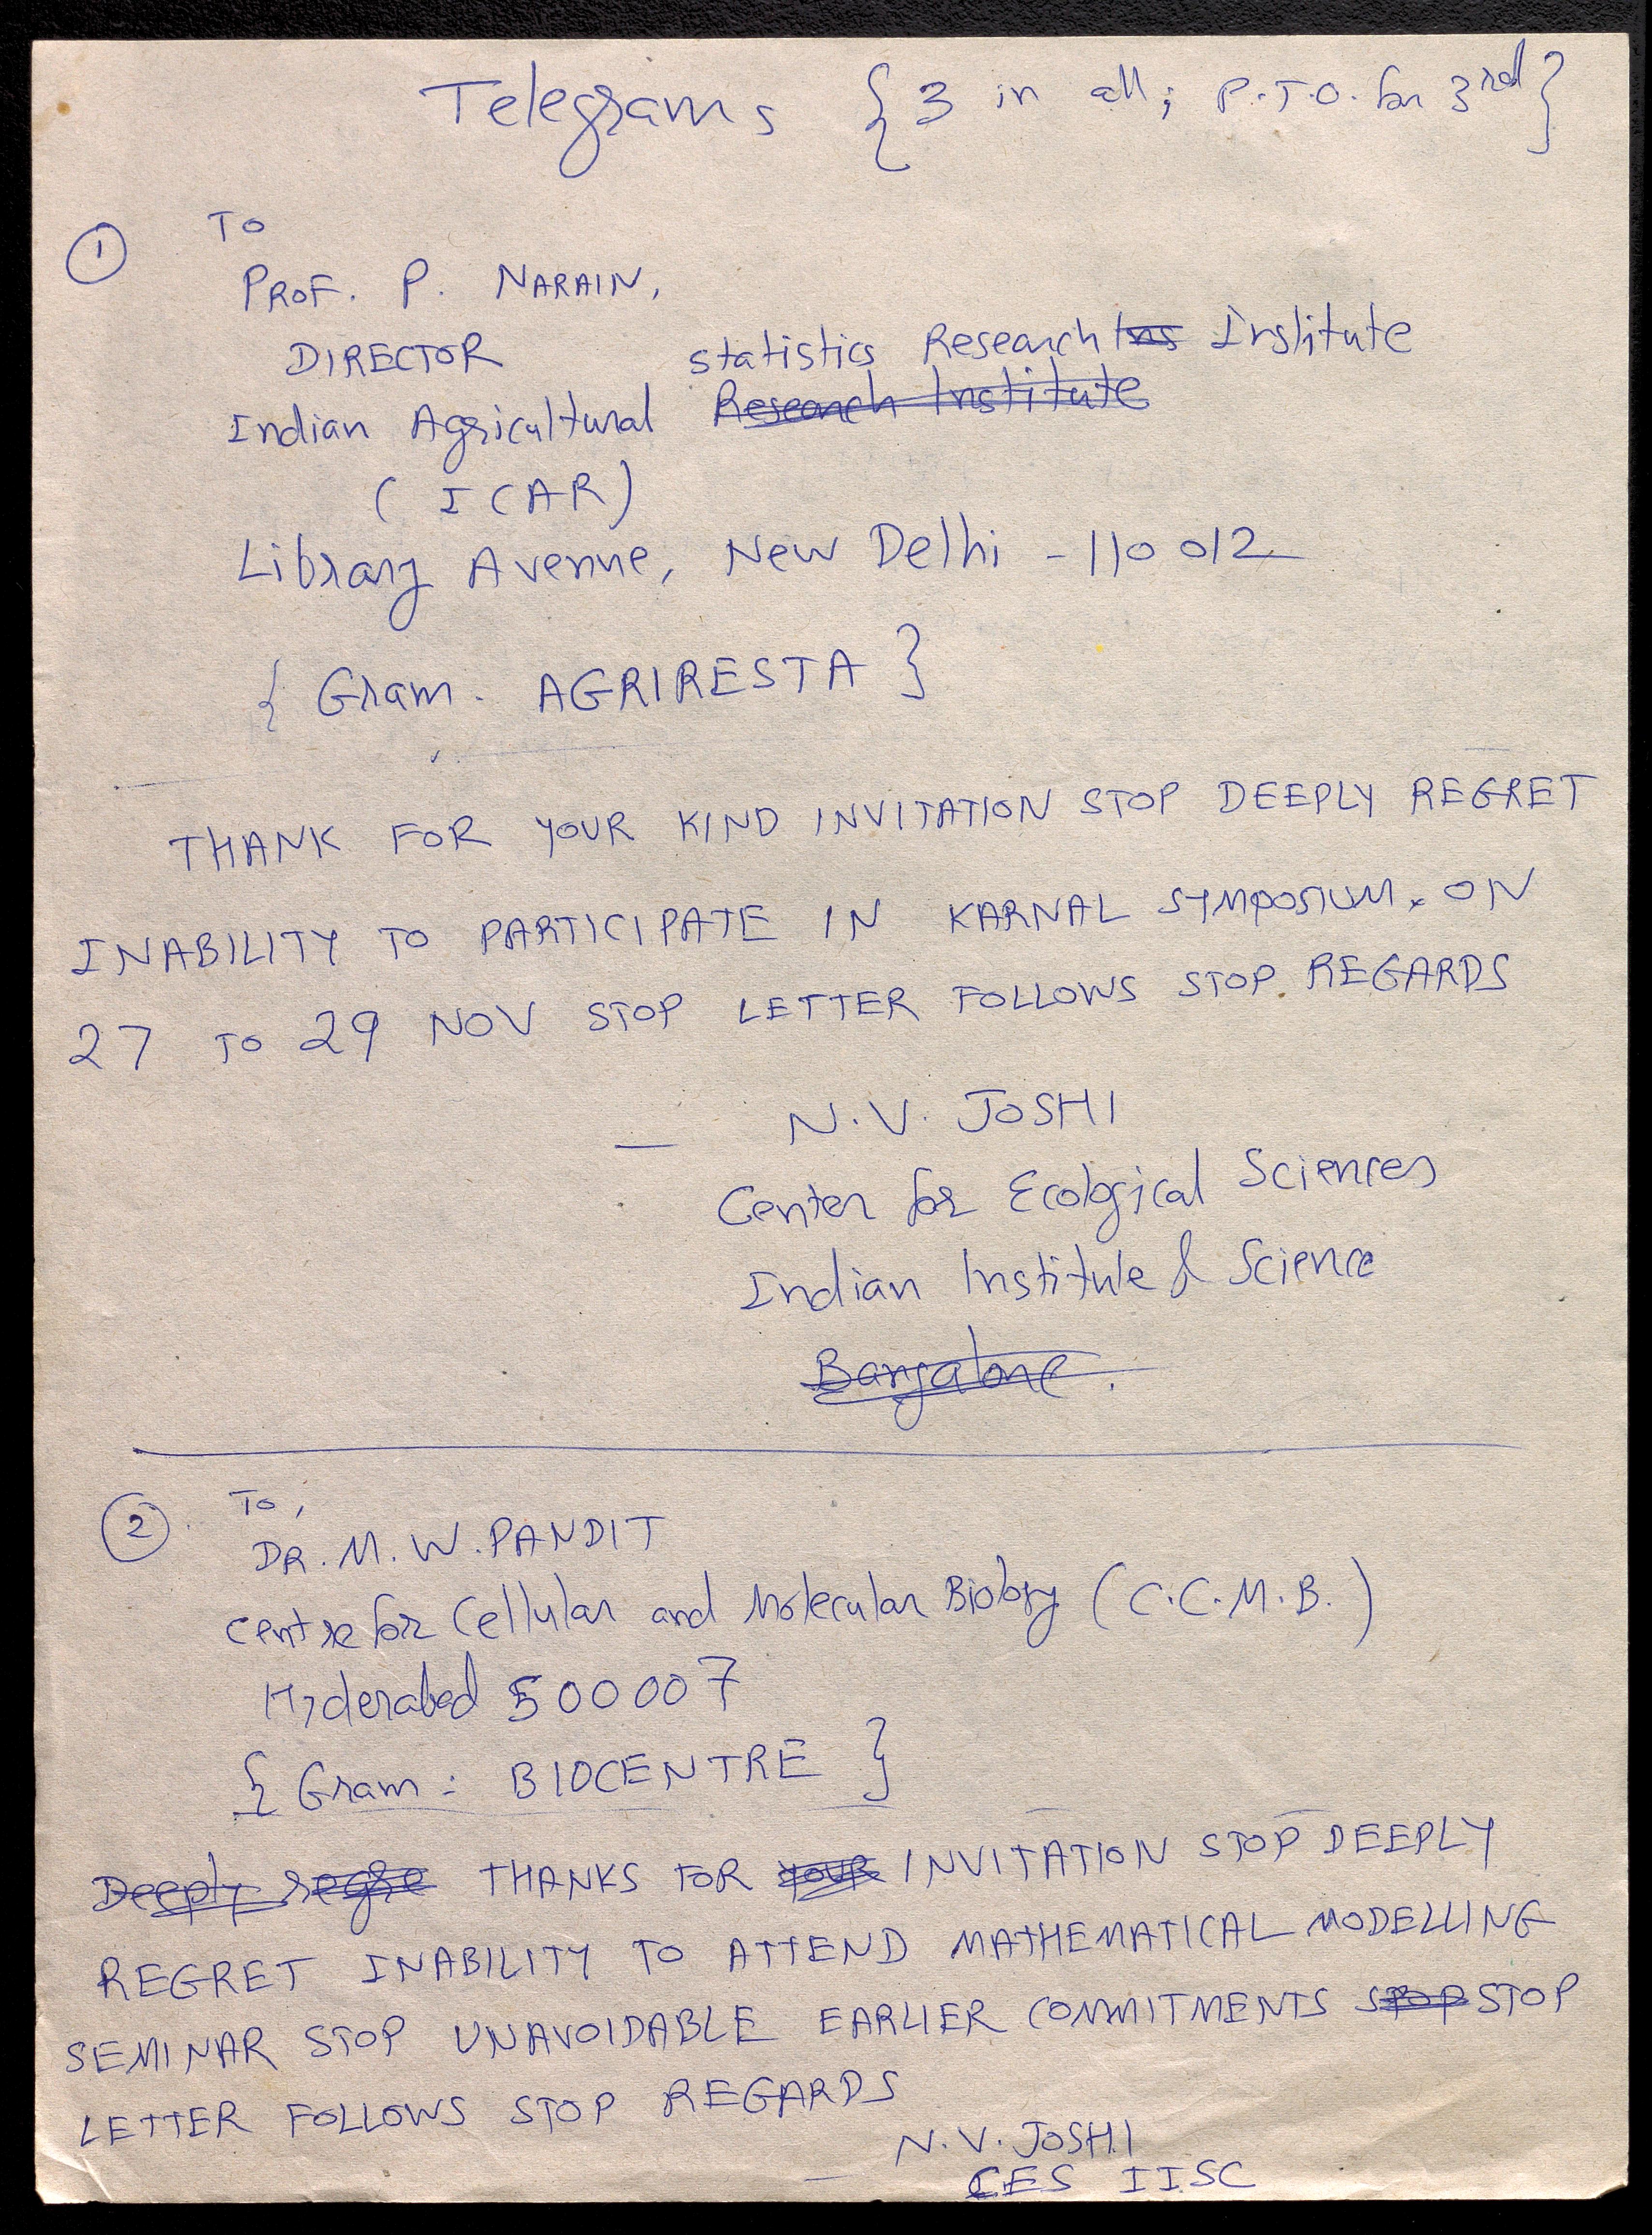 Telegrams {3 in all; P.T.O. for 3rd}
① To
PROF. P. NARAIN,
DIRECTOR
statistics Research Ins Institute
Indian Agricultural Research Institute
( ICAR)
Library Avenue, New Delhi - 110 012
{ Gram. AGRIRESTA }
THANK FOR YOUR KIND INVITATION STOP DEEPLY REGRET
INABILITY TO PARTICIPATE IN KARNAL SYMPOSIUM. ON
27 TO 29 NOV STOP LETTER FOLLOWS STOP. REGARDS
— N.V. JOSHI
Center for Ecological Sciences
Indian Institute of Science
Bangalore.
② To,
DR. M. W. PANDIT
Centre for Cellular and Molecular Biology (C.C.M.B.)
Hyderabad 500007
{ Gram : BIOCENTRE }
Deeply regre THANKS FOR YOUR INVITATION STOP DEEPLY
REGRET INABILITY TO ATTEND MATHEMATICAL MODELLING
SEMINAR STOP UNAVOIDABLE EARLIER COMMITMENTS STOP STOP
LETTER FOLLOWS STOP REGARDS
— N.V. JOSHI
CES IISC